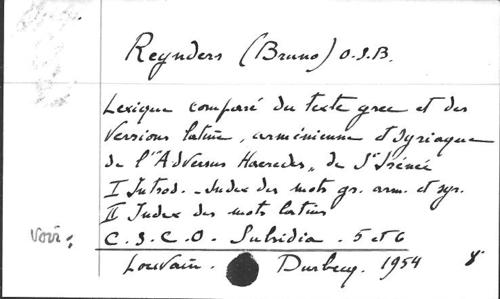 Reynders (Bruno) O.S.B.
Lexique comparé du texte grec et des
versions latine, arménienne et syriaque
de l'"Adversus Haereses" de St Irénée
I Introd. - Index des mots gr. arm. et syr.
II Index des mots latins
Voir: C.S.C.O. Subsidia. 5 et 6
Louvain. Durbecq. 1954 8°